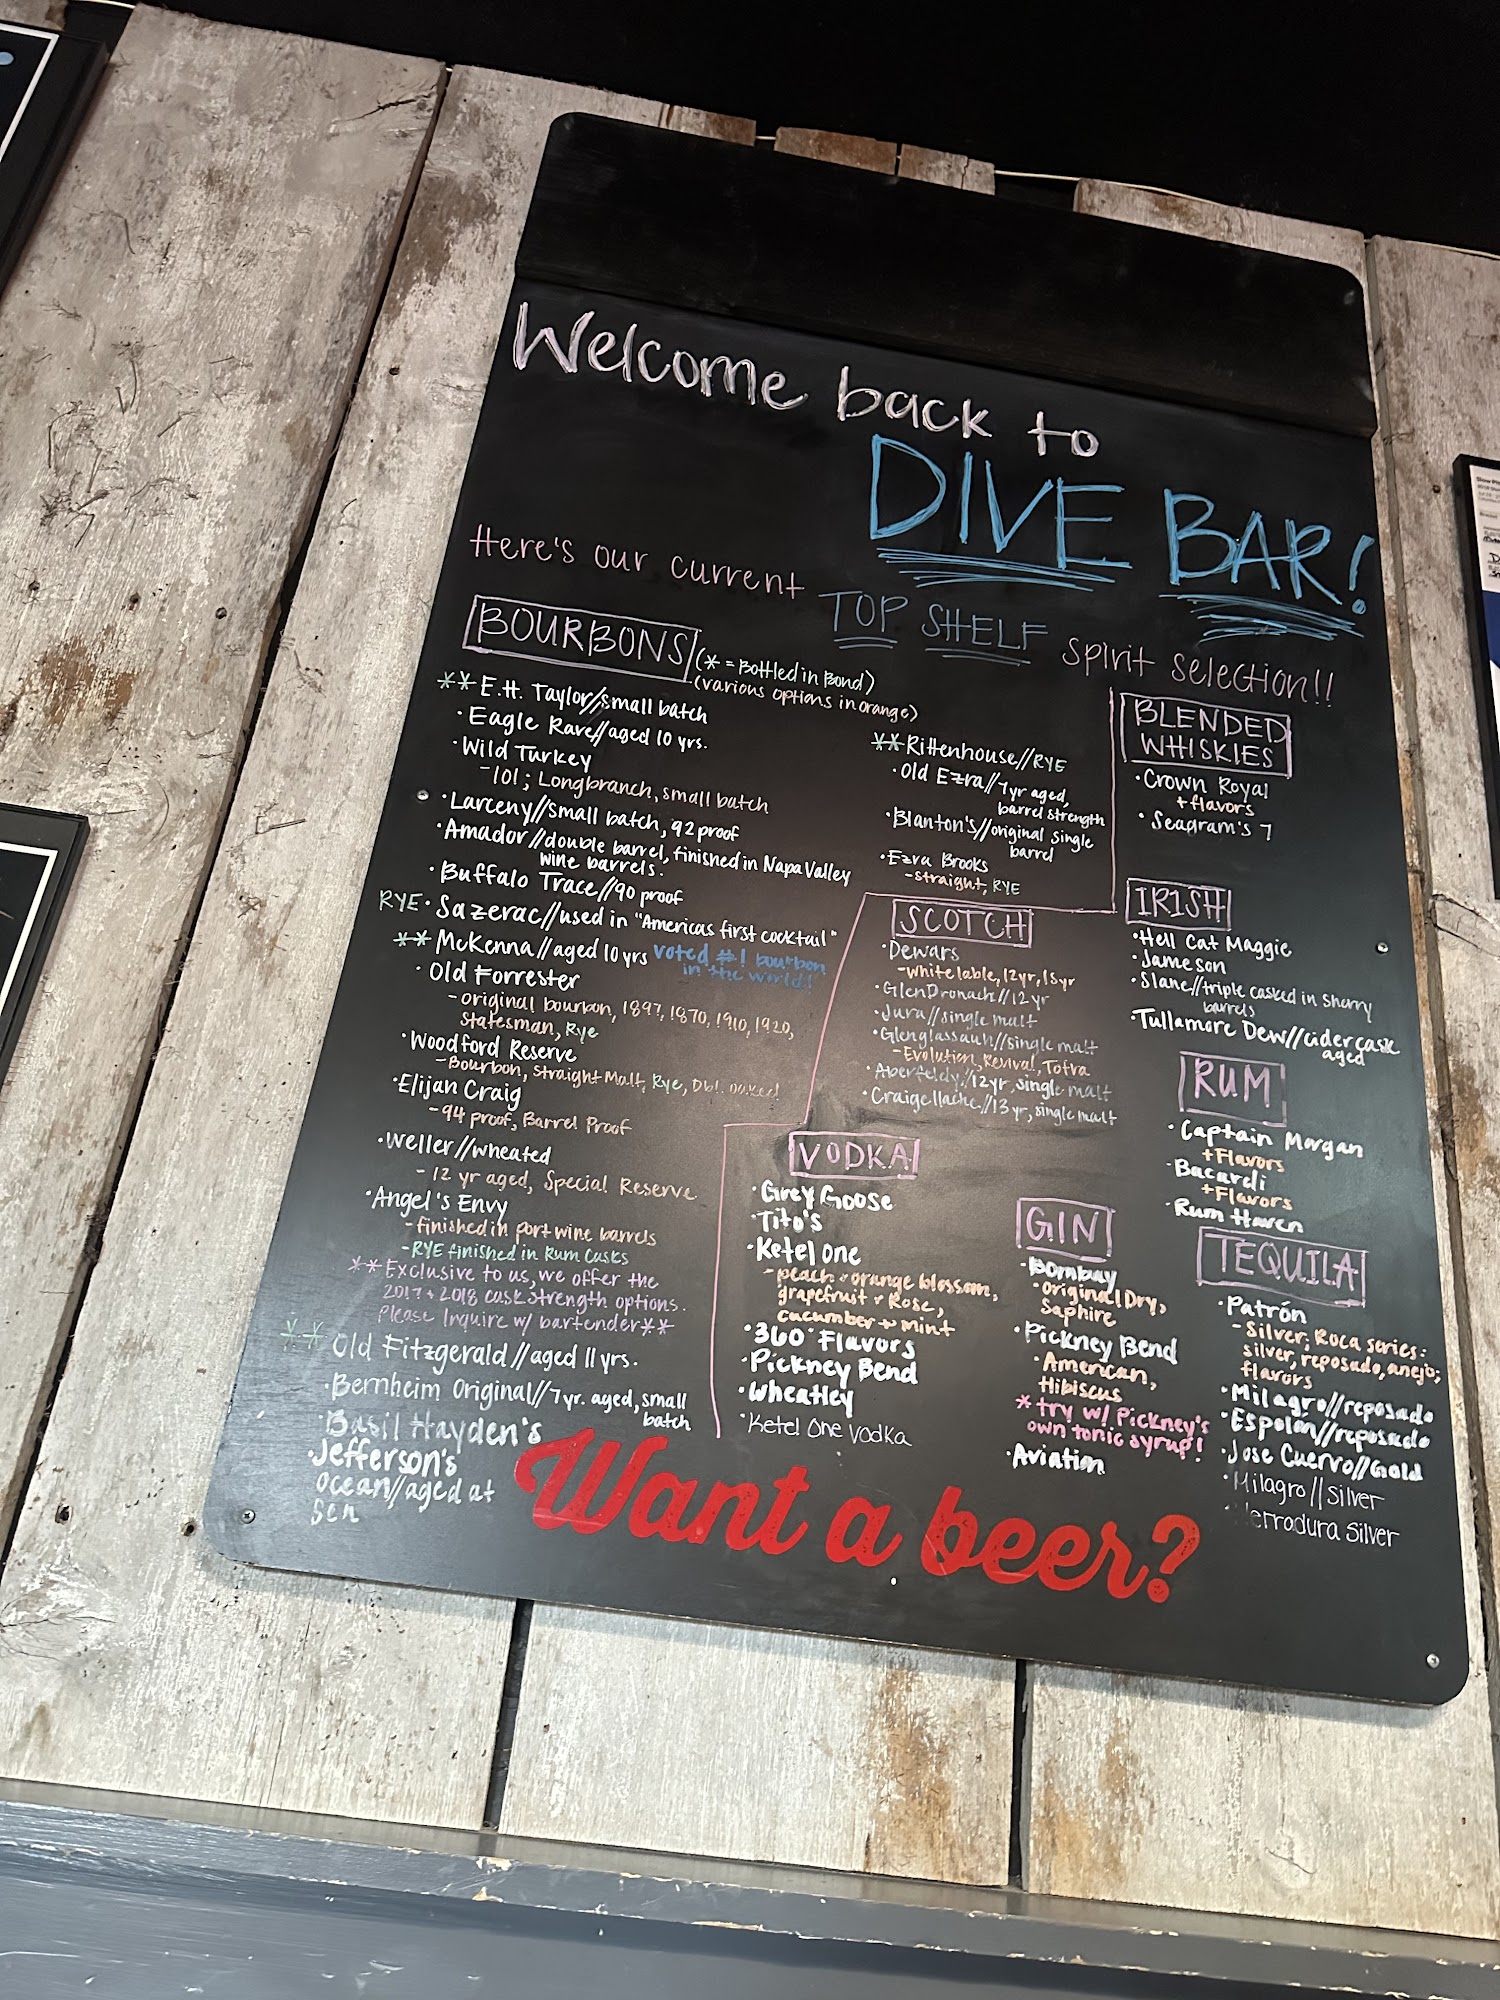 Welcome back to
DIVE BAR!
Here's our current TOP SHELF spirit selection!!
BOURBONS
(* = Bottled in Bond)
(various options in orange)
** E.H. Taylor//small batch
· Eagle Rare//aged 10 yrs.
· Wild Turkey
- 101; Longbranch, small batch
· Larceny//small batch, 92 proof
· Amador//double barrel, finished in Napa Valley
wine barrels.
· Buffalo Trace//90 proof
RYE · Sazerac//used in "Americas first cocktail"
** McKenna//aged 10 yrs voted #1 bourbon
in the world!
· Old Forrester
- original bourbon, 1897, 1870, 1910, 1920,
Statesman, Rye
· Woodford Reserve
- Bourbon, Straight Malt, Rye, Dbl. oaked
· Elijah Craig
- 94 proof, Barrel Proof
· Weller//wheated
- 12 yr aged, Special Reserve
· Angel's Envy
- finished in port wine barrels
- RYE finished in Rum Casks
** Exclusive to us, we offer the
2017 + 2018 cask strength options.
Please Inquire w/ bartender **
** Old Fitzgerald//aged 11 yrs.
· Bernheim Original//7yr. aged, small
batch
· Basil Hayden's
· Jefferson's
Ocean//aged at
Sea
** Rittenhouse//RYE
· Old Ezra//7yr aged,
barrel strength
· Blanton's//original single
barrel
· Ezra Brooks
- straight, RYE
SCOTCH
· Dewars
- White lable, 12yr, 15yr
· GlenDronach//12 yr
· Jura//single malt
· Glenglassauh//single malt
- Evolution, Revival, Tofra
· Aberfeldy//12yr, single malt
· Craigellache//13 yr, single malt
VODKA
· Grey Goose
· Tito's
· Ketel One
- peach + orange blossom,
grapefruit + Rose,
cucumber + Mint
· 360° Flavors
· Pickney Bend
· Wheatley
· Ketel One Vodka
GIN
· Bombay
· Original Dry,
Saphire
· Pickney Bend
· American,
Hibiscus
* try w/ Pickney's
own tonic syrup!
· Aviation
BLENDED
WHISKIES
· Crown Royal
+ flavors
· Seagram's 7
IRISH
· Hell Cat Maggie
· Jameson
· Slane//triple casked in Sherry
barrels
· Tullamore Dew//cider cask
aged
RUM
· Captain Morgan
+ Flavors
· Bacardi
+ Flavors
· Rum Haven
TEQUILA
· Patrón
- Silver, Roca series:
silver, reposado, anejo;
flavors
· Milagro//reposado
· Espolon//reposado
· Jose Cuervo//Gold
· Milagro//silver
erradura Silver
Want a beer?